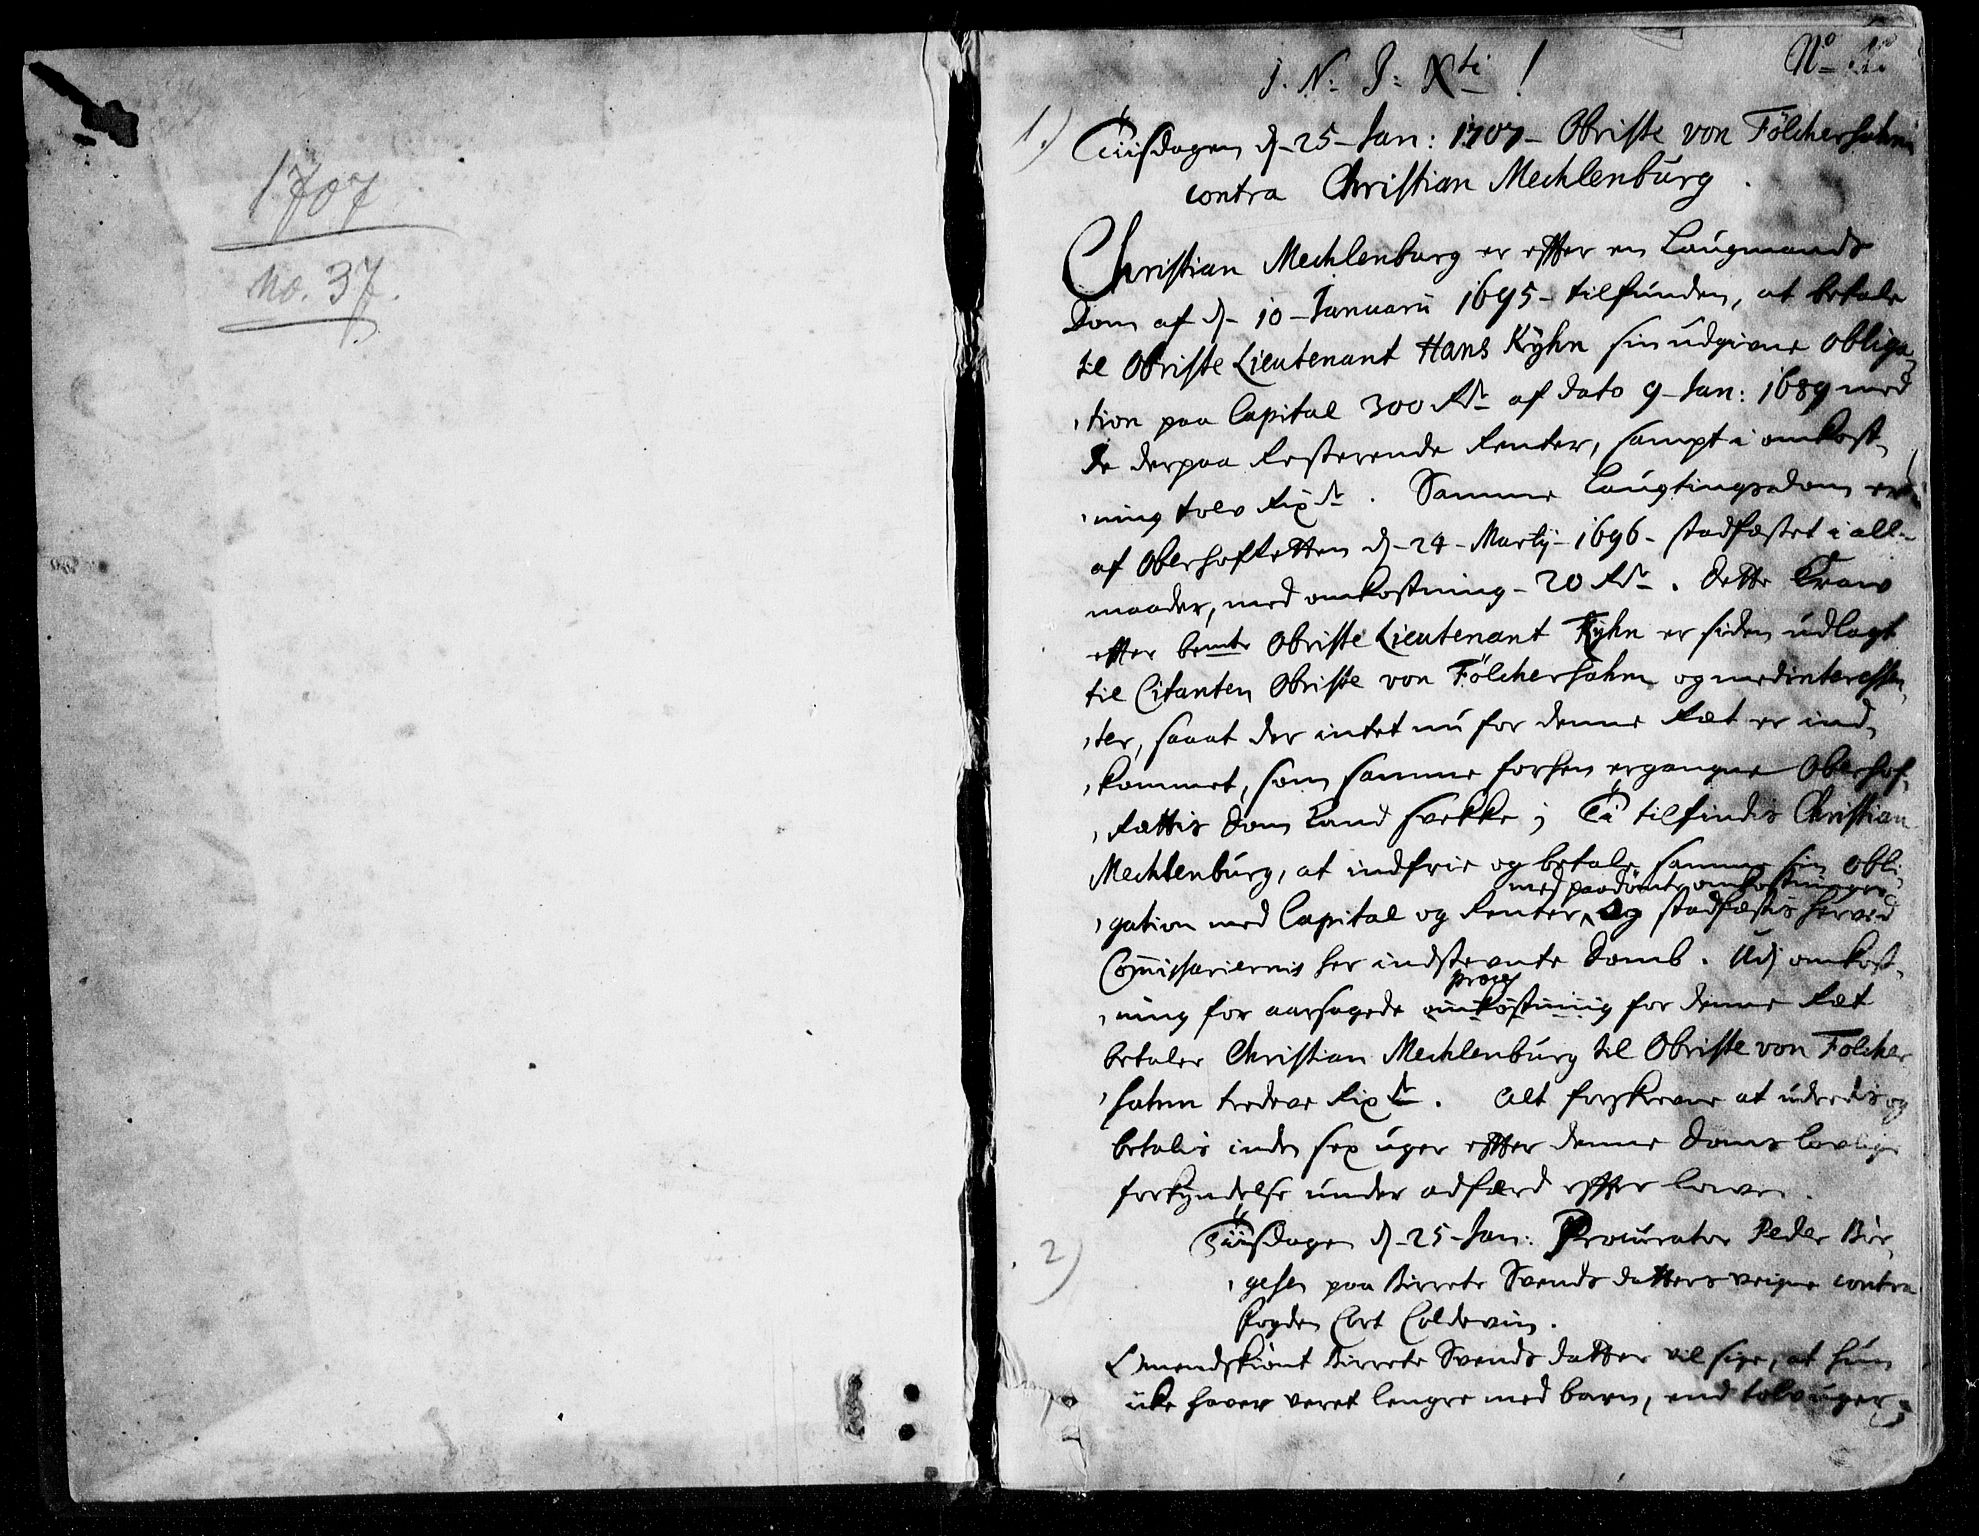 1707
No. 37.
J. N: J: Xti !
No
1.) Tiisdagen d. 25 Jan: 1707 - Obriste von Fölchersahm
contra Christian Mechlenburg.
Christian Mechlenburg er effter en Laugmands
Dom af d. 10 Januarii 1695 - tilfunden, at betale
til Obriste Lieutenant Hans Kyhn sin udgivne obliga-
tion paa Capital 300 Rdr af dato 9 Jan: 1689 med
de derpaa resterende Renter, sampt i omkost-
ning tolv Rixdr. Samme Laugtingsdom er
af Oberhofretten d. 24 Martij 1696 - stadfæstet i alle
maader, med omkostning - 20 Rdr. Dette Krav
effter bemte Obriste Lieutenant Kyhn er siden udlagt
til Citanten Obriste von Fölchersahm og medinteressen-
ter, saaat der intet nu for denne Ræt er ind-
kommet, som samme forhen ergangne Oberhof-
rættis Dom kand svekke; Ti tilfindis Christian
Mechlenburg, at indfrie og betale samme sin obli-
gation med Capital og Renter, med paadömte omkostninger og stadfæstis herved
Commissariernis her indstevnte Domb. Udj omkost-
ning for aarsagede omkostning proces for denne Ræt
betaler Christian Mechlenburg til Obriste von Fölcher-
sahm tredeve Rixdr. Alt forskrevne at udredis og
betalis inden sex uger effter denne Doms lovlige
forkyndelse under adfærd effter loven.
2) Tiisdagen d. 25 Jan: Procurator Peder Bör-
gesen paa Birrete Svends datters veigne contra
fogden Cort Coldevin.
Omendskiönt Birrete Svends datter vil sige, at hun
icke haver veret lengre med barn, end tolv uger,